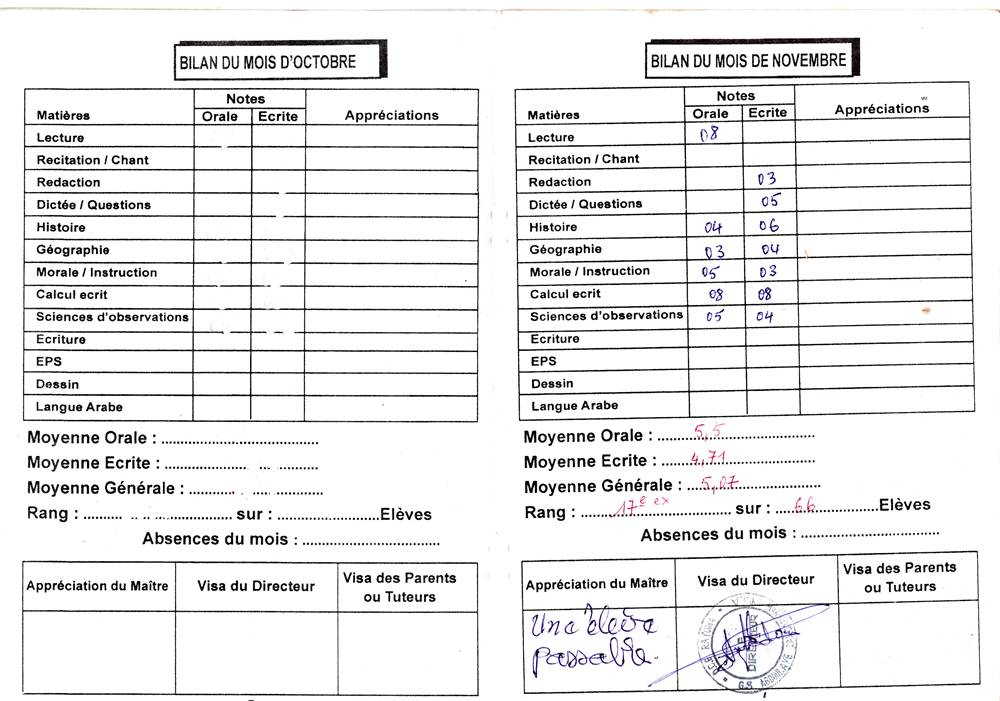 BILAN DU MOIS D'OCTOBRE
Matières Notes Appréciations
Orale Ecrite
Lecture
Recitation / Chant
Redaction
Dictée / Questions
Histoire
Géographie
Morale / Instruction
Calcul ecrit
Sciences d'observations
Ecriture
EPS
Dessin
Langue Arabe
Moyenne Orale : ........................................
Moyenne Ecrite : ........................................
Moyenne Générale : ........................................
Rang : ........................ sur : ........................Elèves
Absences du mois : ........................................
Appréciation du Maître Visa du Directeur Visa des Parents
ou Tuteurs
BILAN DU MOIS DE NOVEMBRE
Matières Notes Appréciations
Orale Ecrite
Lecture 08
Recitation / Chant
Redaction 03
Dictée / Questions 05
Histoire 04 06
Géographie 03 04
Morale / Instruction 05 03
Calcul ecrit 08 08
Sciences d'observations 05 04
Ecriture
EPS
Dessin
Langue Arabe
Moyenne Orale : 5,5
Moyenne Ecrite : 4,71
Moyenne Générale : 5,07
Rang : 17e ex sur : 66 Elèves
Absences du mois : ........................................
Appréciation du Maître Visa du Directeur Visa des Parents
ou Tuteurs
Une élève
passable.
DIRECTEUR